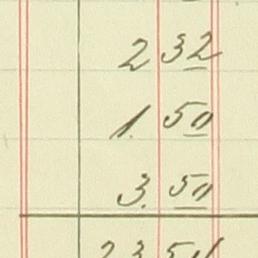 2 32
1. 50
3. 50